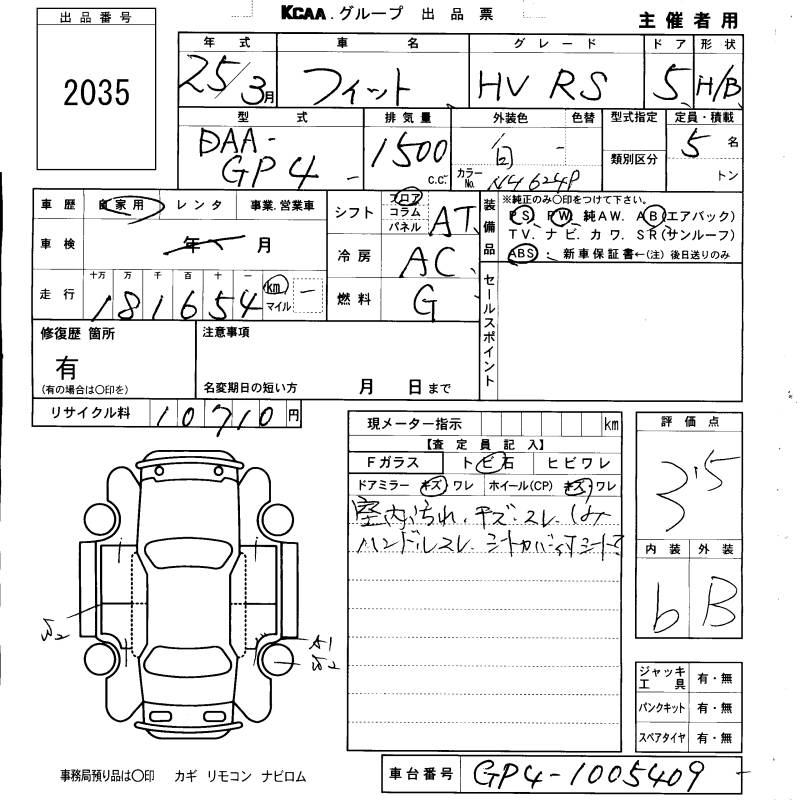 KCAA.グループ 出品票
主催者用
出品番号
2035
年式 車名 グレード ドア 形状
25/3月 フィット HV RS 5 H/B
型式 排気量 外装色 色替 型式指定 定員・積載
DAA-GP4 - 1500 c.c. 白 - 5名
カラーNo. NH624P 類別区分 トン
車歴 自家用 レンタ 事業.営業車
シフト フロア コラム パネル AT
装備品 ※純正のみ○印をつけて下さい。
PS PW 純AW. AB(エアバック)
TV. ナビ. カワ. SR(サンルーフ)
ABS: 新車保証書←(注)後日送りのみ
車検 年 月
冷房 AC
走行 十万 万 千 百 十 一
181654 km マイル -
燃料 G
セールスポイント
修復歴 箇所
有
(有の場合は○印を)
注意事項
名変期日の短い方 月 日まで
リサイクル料 10710円
現メーター指示 km
【査定員記入】
Fガラス トビ石 ヒビワレ
ドアミラー キズ・ワレ ホイール(CP) キズ・ワレ
室内汚れ.キズ.スレ.
ハンドルスレ.
評価点
3.5
内装 外装
b B
ジャッキ工具 有・無
パンクキット 有・無
スペアタイヤ 有・無
事務局預り品は○印 カギ リモコン ナビロム
車台番号 GP4-1005409